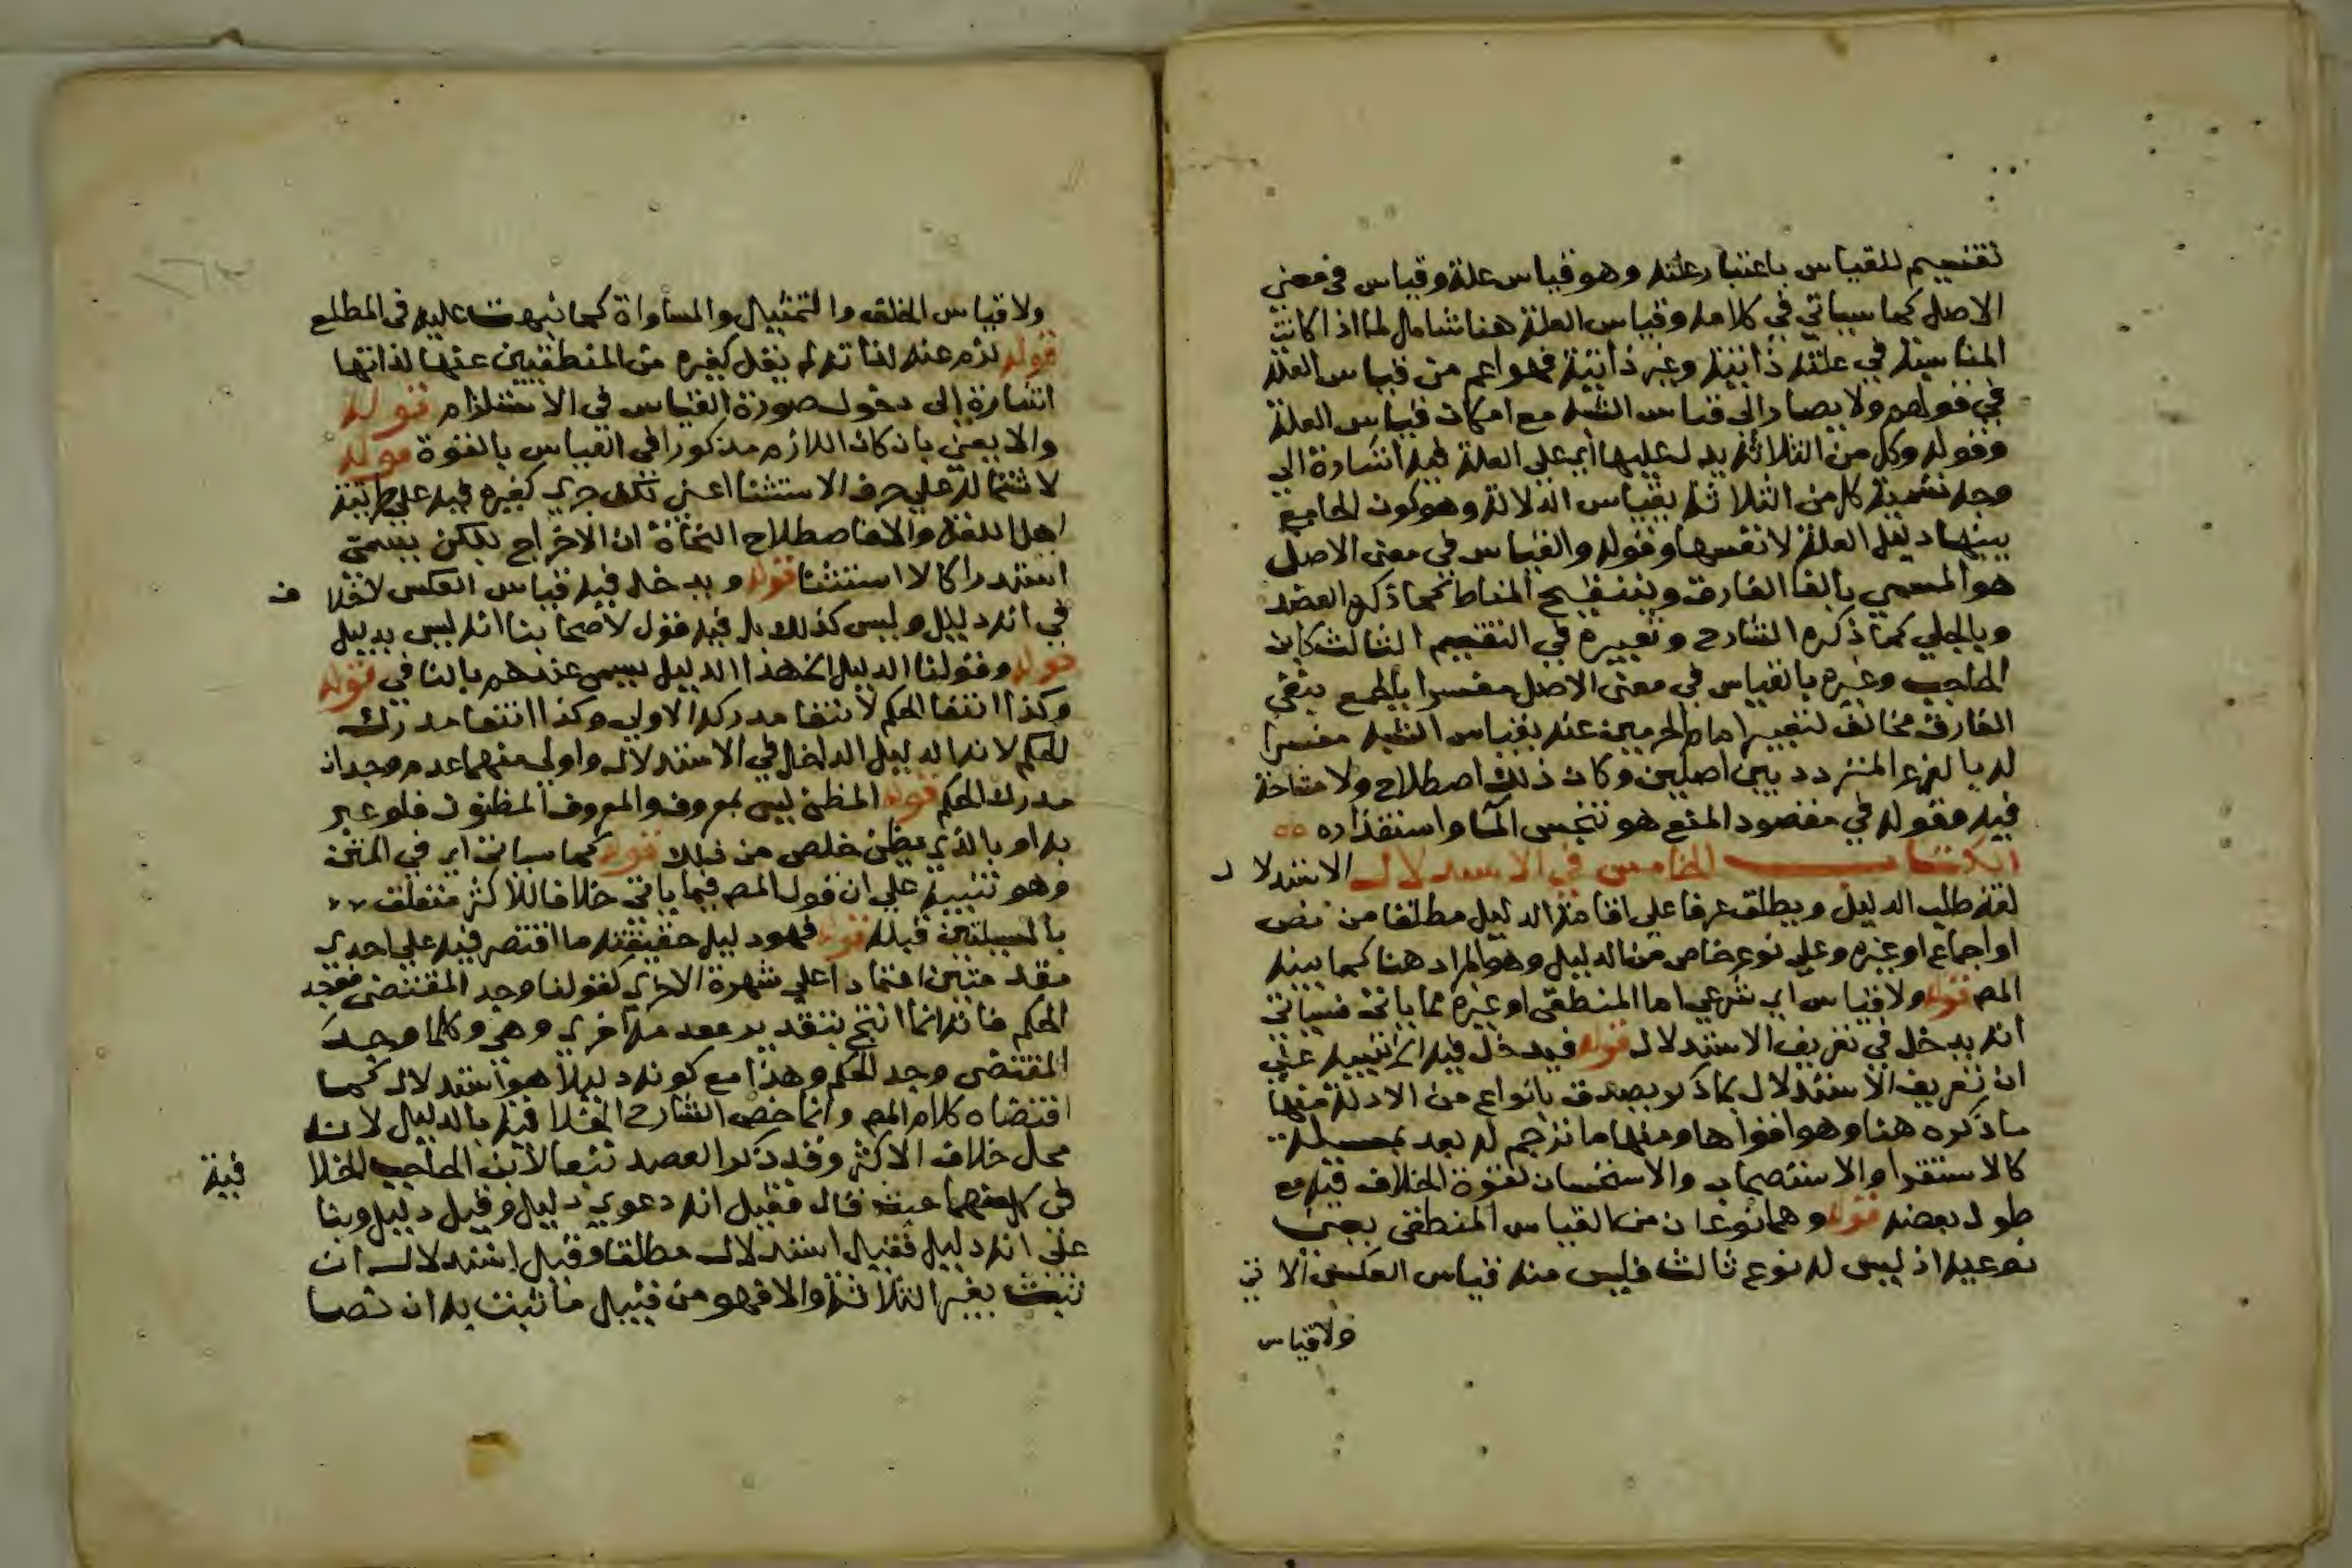 تقسيم للقياس باعتبار علته وهو قياس علة وقياس في معني
الاصل كما سياتي في كلامه وقياس العلة هنا شامل لما اذا كانت
المناسبة في علته ذاتية وغير ذاتية فهو اعم من قياس العلة
في قولهم ولا يصار الي قياس الشبه مع امكان قياس العلة
وقوله وكل من الثلاثة يدل عليها اي علي العلة فيه اشارة الي
وجه تسمية كل من الثلاثة بقياس الدلالة وهو كون الجامع
بينهما دليل العلة لا نفسها وقوله والقياس في معني الاصل
هو المسمي بالغا الفارق وبتنقيح المناط كما ذكره العضد
وبالجلي كما ذكره الشارح وتعبيره في التقسيم الثالث كابن
الحاجب وغيره بالقياس في معني الاصل مفسرا بالجمع بنفي
الفارق مخالف لتعبير امام الحرمين عنه بقياس الشبه مفسرا
له بالفرع المتردد بين اصلين وكان ذلك اصطلاح ولا مشاحة
فيه وقوله في مقصود المنع هو تنجس الماء واستقذاره ٥٥
الكتاب الخامس في الاستدلال الاستدلال
لغة طلب الدليل ويطلق عرفا علي اقامة الدليل مطلقا من نص
او اجماع او غيره وعلي نوع خاص من الدليل وهو المراد هنا كما بينه
المص قوله ولا قياس اي شرعي اما المنطقي او غيره مما ياتي فسياتي
انه يدخل في تعريف الاستدلال قوله فيدخل فيه الخ تنبيه علي
ان تعريف الاستدلال بما ذكر يصدق بانواع من الادلة منها
ما ذكره هنا وهو اقواها ومنها ما ترجم له بعد بمسيلة
كالاستقرا والاستصحاب والاستحسان لقوة الخلاف فيه مع
طول بعضه قوله وهما نوعان من القياس المنطقي يعني
نوعيه اذ ليس له نوع ثالث فليس منه قياس العكس الاتي
ولا قياس
ولا قياس الخلف والتمثيل والمساواة كما نبهت عليه في المطلع
قوله لزم عنه لذاته لم يقل كغيره من المنطقيين عنها لذاتها
اشارة الي دخول صورة القياس في الاستلزام قوله
والا يعني بان كان اللازم مذكورا في القياس بالقوة قوله
لاشتماله علي حرف الاستثنا اعني لكن جري كغيره فيه علي طريقة
اهل اللغة والا فاصطلاح النحاة ان الاخراج بلكن يسمي
استدراكا لا استثنا قوله ويدخل فيه قياس العكس لا خلاف
في انه دليل وليس كذلك بل فيه قول لاصحابنا انه ليس بدليل
قوله وقولنا الدليل الخ هذا الدليل يسمي عندهم بالنافي قوله
وكذا انتفا الحكم لانتفا مدركه الاولي وكذا انتفا مدرك
الحكم لانه الدليل الداخل في الاستدلال واولي منهما عدم وجدان
مدرك الحكم قوله المظن ليس بمعروف والمعروف المظنون فلو عبر
به او بالذي يظن خلص من ذلك قوله كما سياتي اي في المتن
وهو تنبيه علي ان قول المص فيما ياتي خلافا للاكثر متعلق
بالمسيلتين قبله قوله فهو دليل حقيقته ما اقتصر فيه علي احدي
مقدمتين اعتمادا علي شهرة الاخري كقولنا وجد المقتضي فوجد
الحكم فانه انما انتج بتقدير مقدمة اخري وهي وكلما وجد
المقتضي وجد الحكم وهذا مع كونه دليلا هو استدلال كما
اقتضاه كلام المص وانما خص الشارح الخلاف فيه بالدليل لانه
محل خلاف الاكثر وقد ذكر العضد تبعا لابن الحاجب الخلاف فيه
في كل منهما حيث قال فقيل انه دعوي دليل وقيل دليل وبنا
علي انه دليل فقيل استدلال مطلقا وقيل استدلال ان
ثبت بغير الثلاثة والا فهو من قبيل ما ثبت به ان نصا